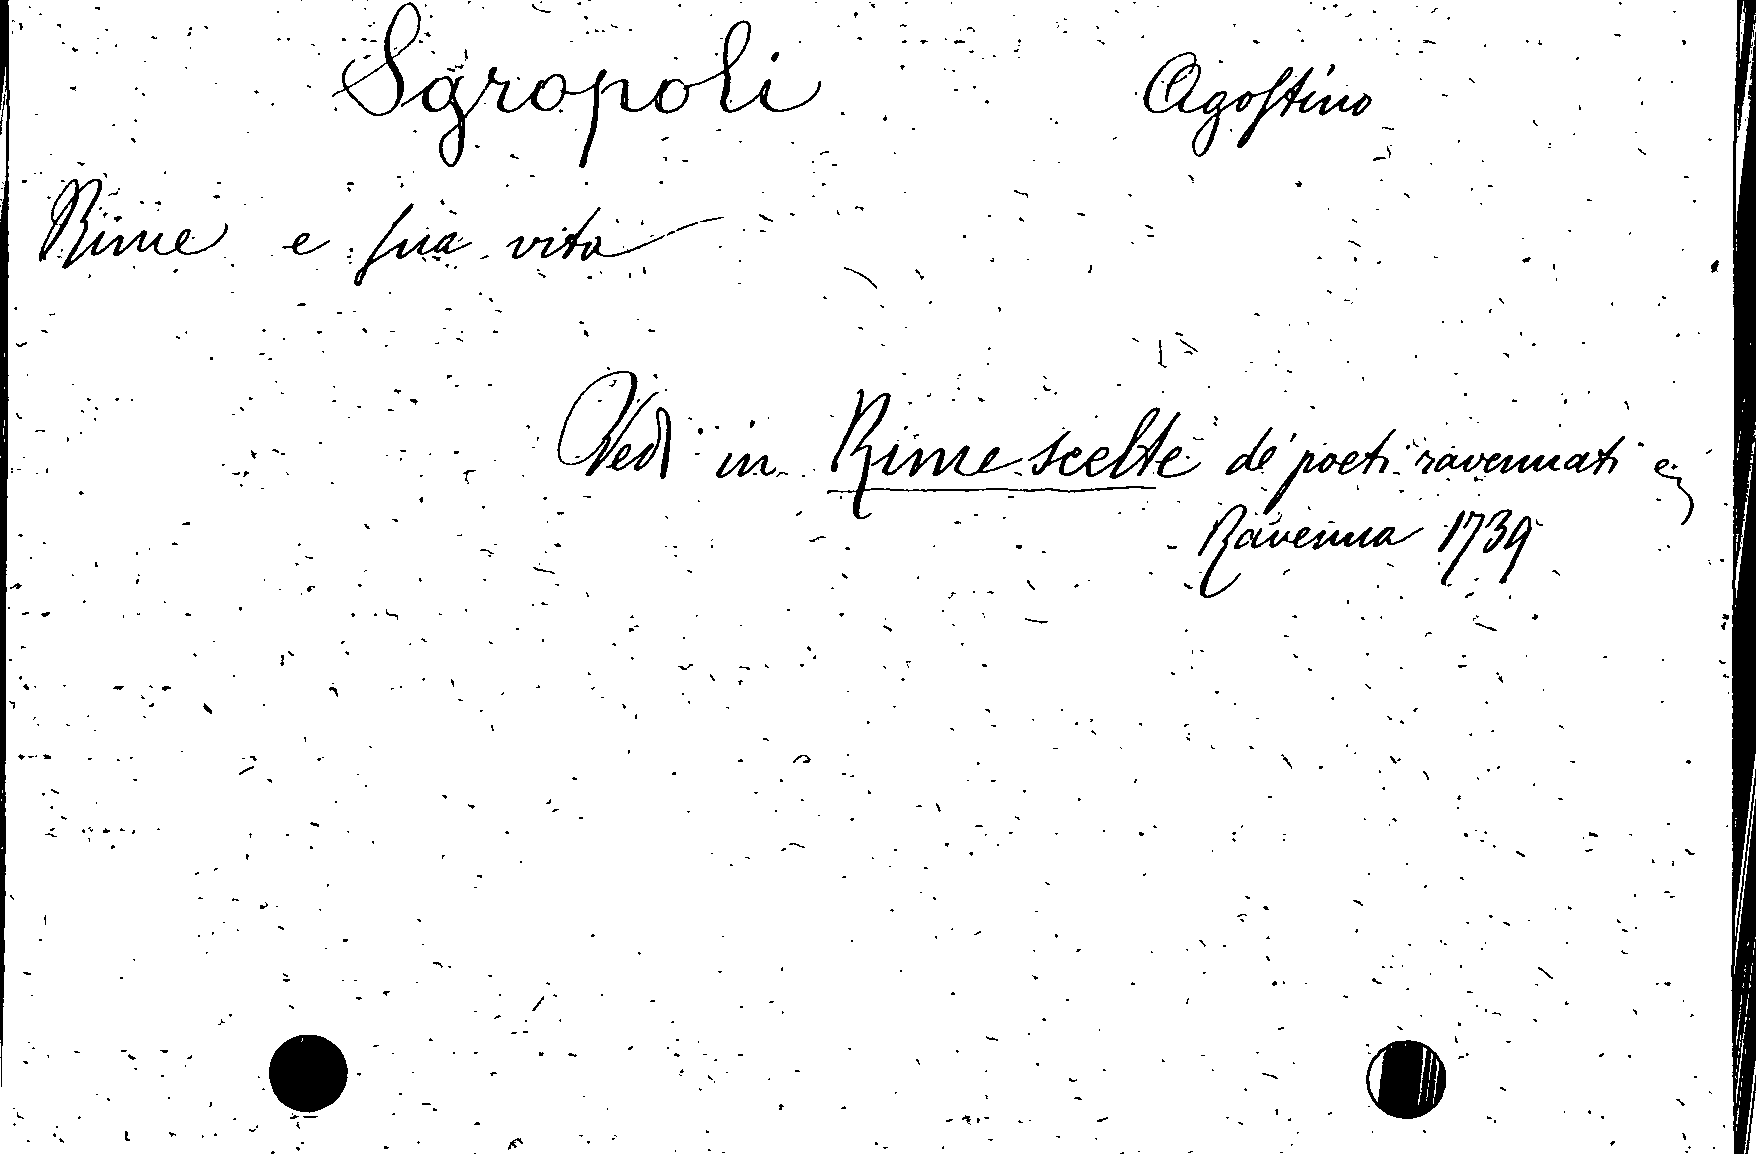 Sgropoli Agostino
Rime e sua vita
Vedi in Rime scelte de' poeti ravennati e
Ravenna 1739